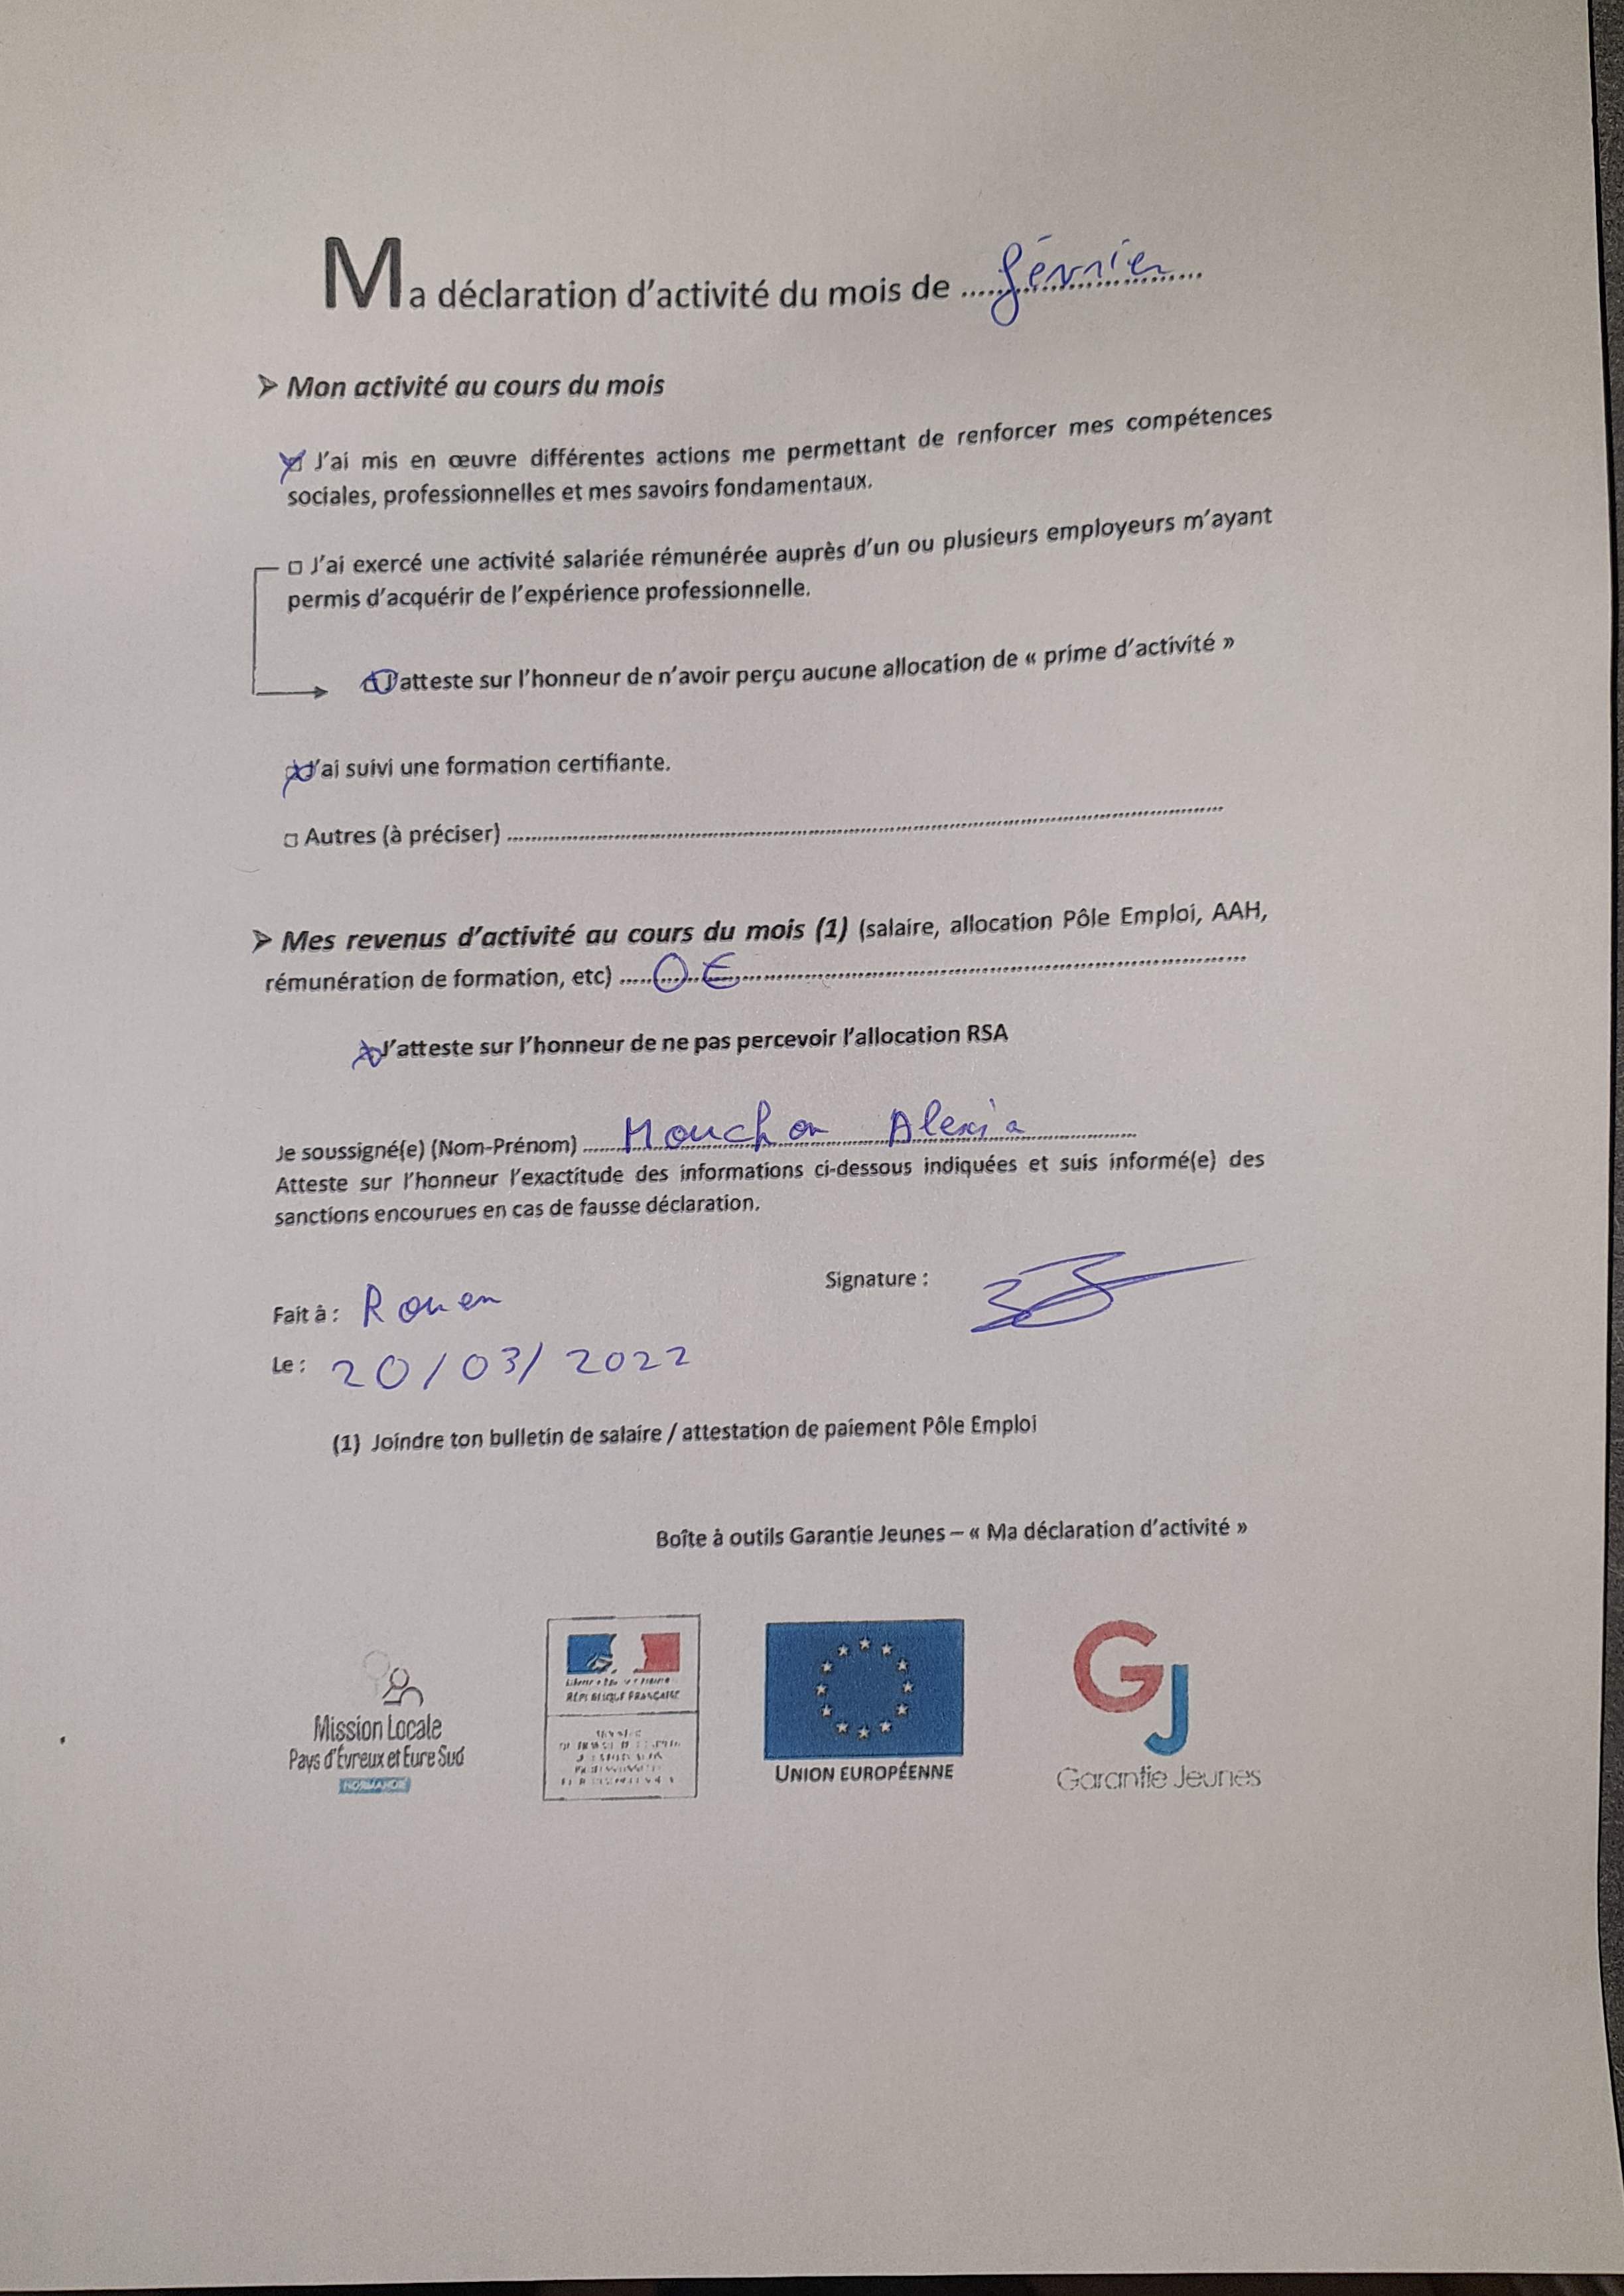 Ma déclaration d'activité du mois de ..... février .....
➢ Mon activité au cours du mois
☒ J'ai mis en œuvre différentes actions me permettant de renforcer mes compétences
sociales, professionnelles et mes savoirs fondamentaux.
□ J'ai exercé une activité salariée rémunérée auprès d'un ou plusieurs employeurs m'ayant
permis d'acquérir de l'expérience professionnelle.
☒ J'atteste sur l'honneur de n'avoir perçu aucune allocation de « prime d'activité »
☒ J'ai suivi une formation certifiante.
□ Autres (à préciser) ..........
➢ Mes revenus d'activité au cours du mois (1) (salaire, allocation Pôle Emploi, AAH,
rémunération de formation, etc) ..... 0 € ..........
☒ J'atteste sur l'honneur de ne pas percevoir l'allocation RSA
Je soussigné(e) (Nom-Prénom) ..... Mouchon Alexia .....
Atteste sur l'honneur l'exactitude des informations ci-dessous indiquées et suis informé(e) des
sanctions encourues en cas de fausse déclaration.
Signature :
Fait à : Rouen
Le : 20/03/2022
(1) Joindre ton bulletin de salaire / attestation de paiement Pôle Emploi
Boîte à outils Garantie Jeunes – « Ma déclaration d'activité »
Mission Locale
Pays d'Évreux et Eure Sud
NORMANDIE
RÉPUBLIQUE FRANÇAISE
UNION EUROPÉENNE
GJ
Garantie Jeunes